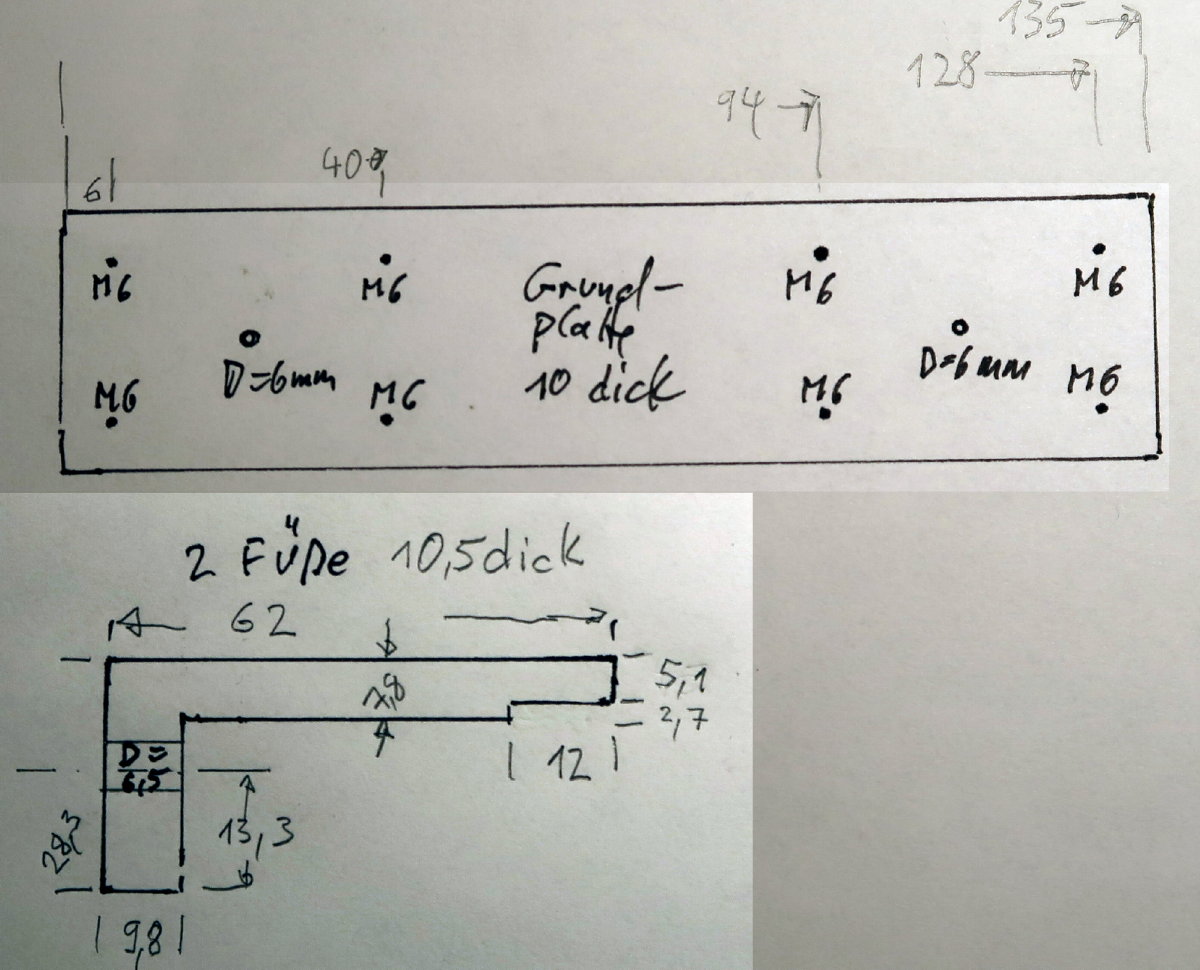 135
128
94
40
6
M6 M6 Grund- M6 M6
platte
D=6mm D=6mm
M6 M6 10 dick M6 M6
2 Füße 10,5 dick
62
5,1
7,8
2,7
12
D=
6,5
28,3
13,3
9,8